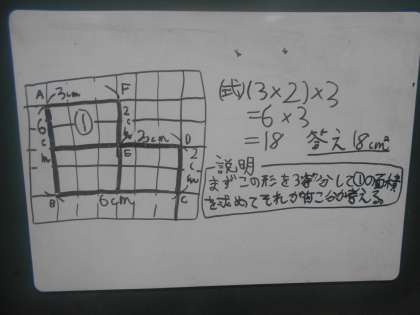 A 3cm F
(式)(3×2)×3
=6×3
=18 答え 18cm²
①
2cm
6cm
3cm D
E
2cm
B 6cm C
説明
まずこの形を3等分して①の面積
を求めてそれが何こ分か考える。